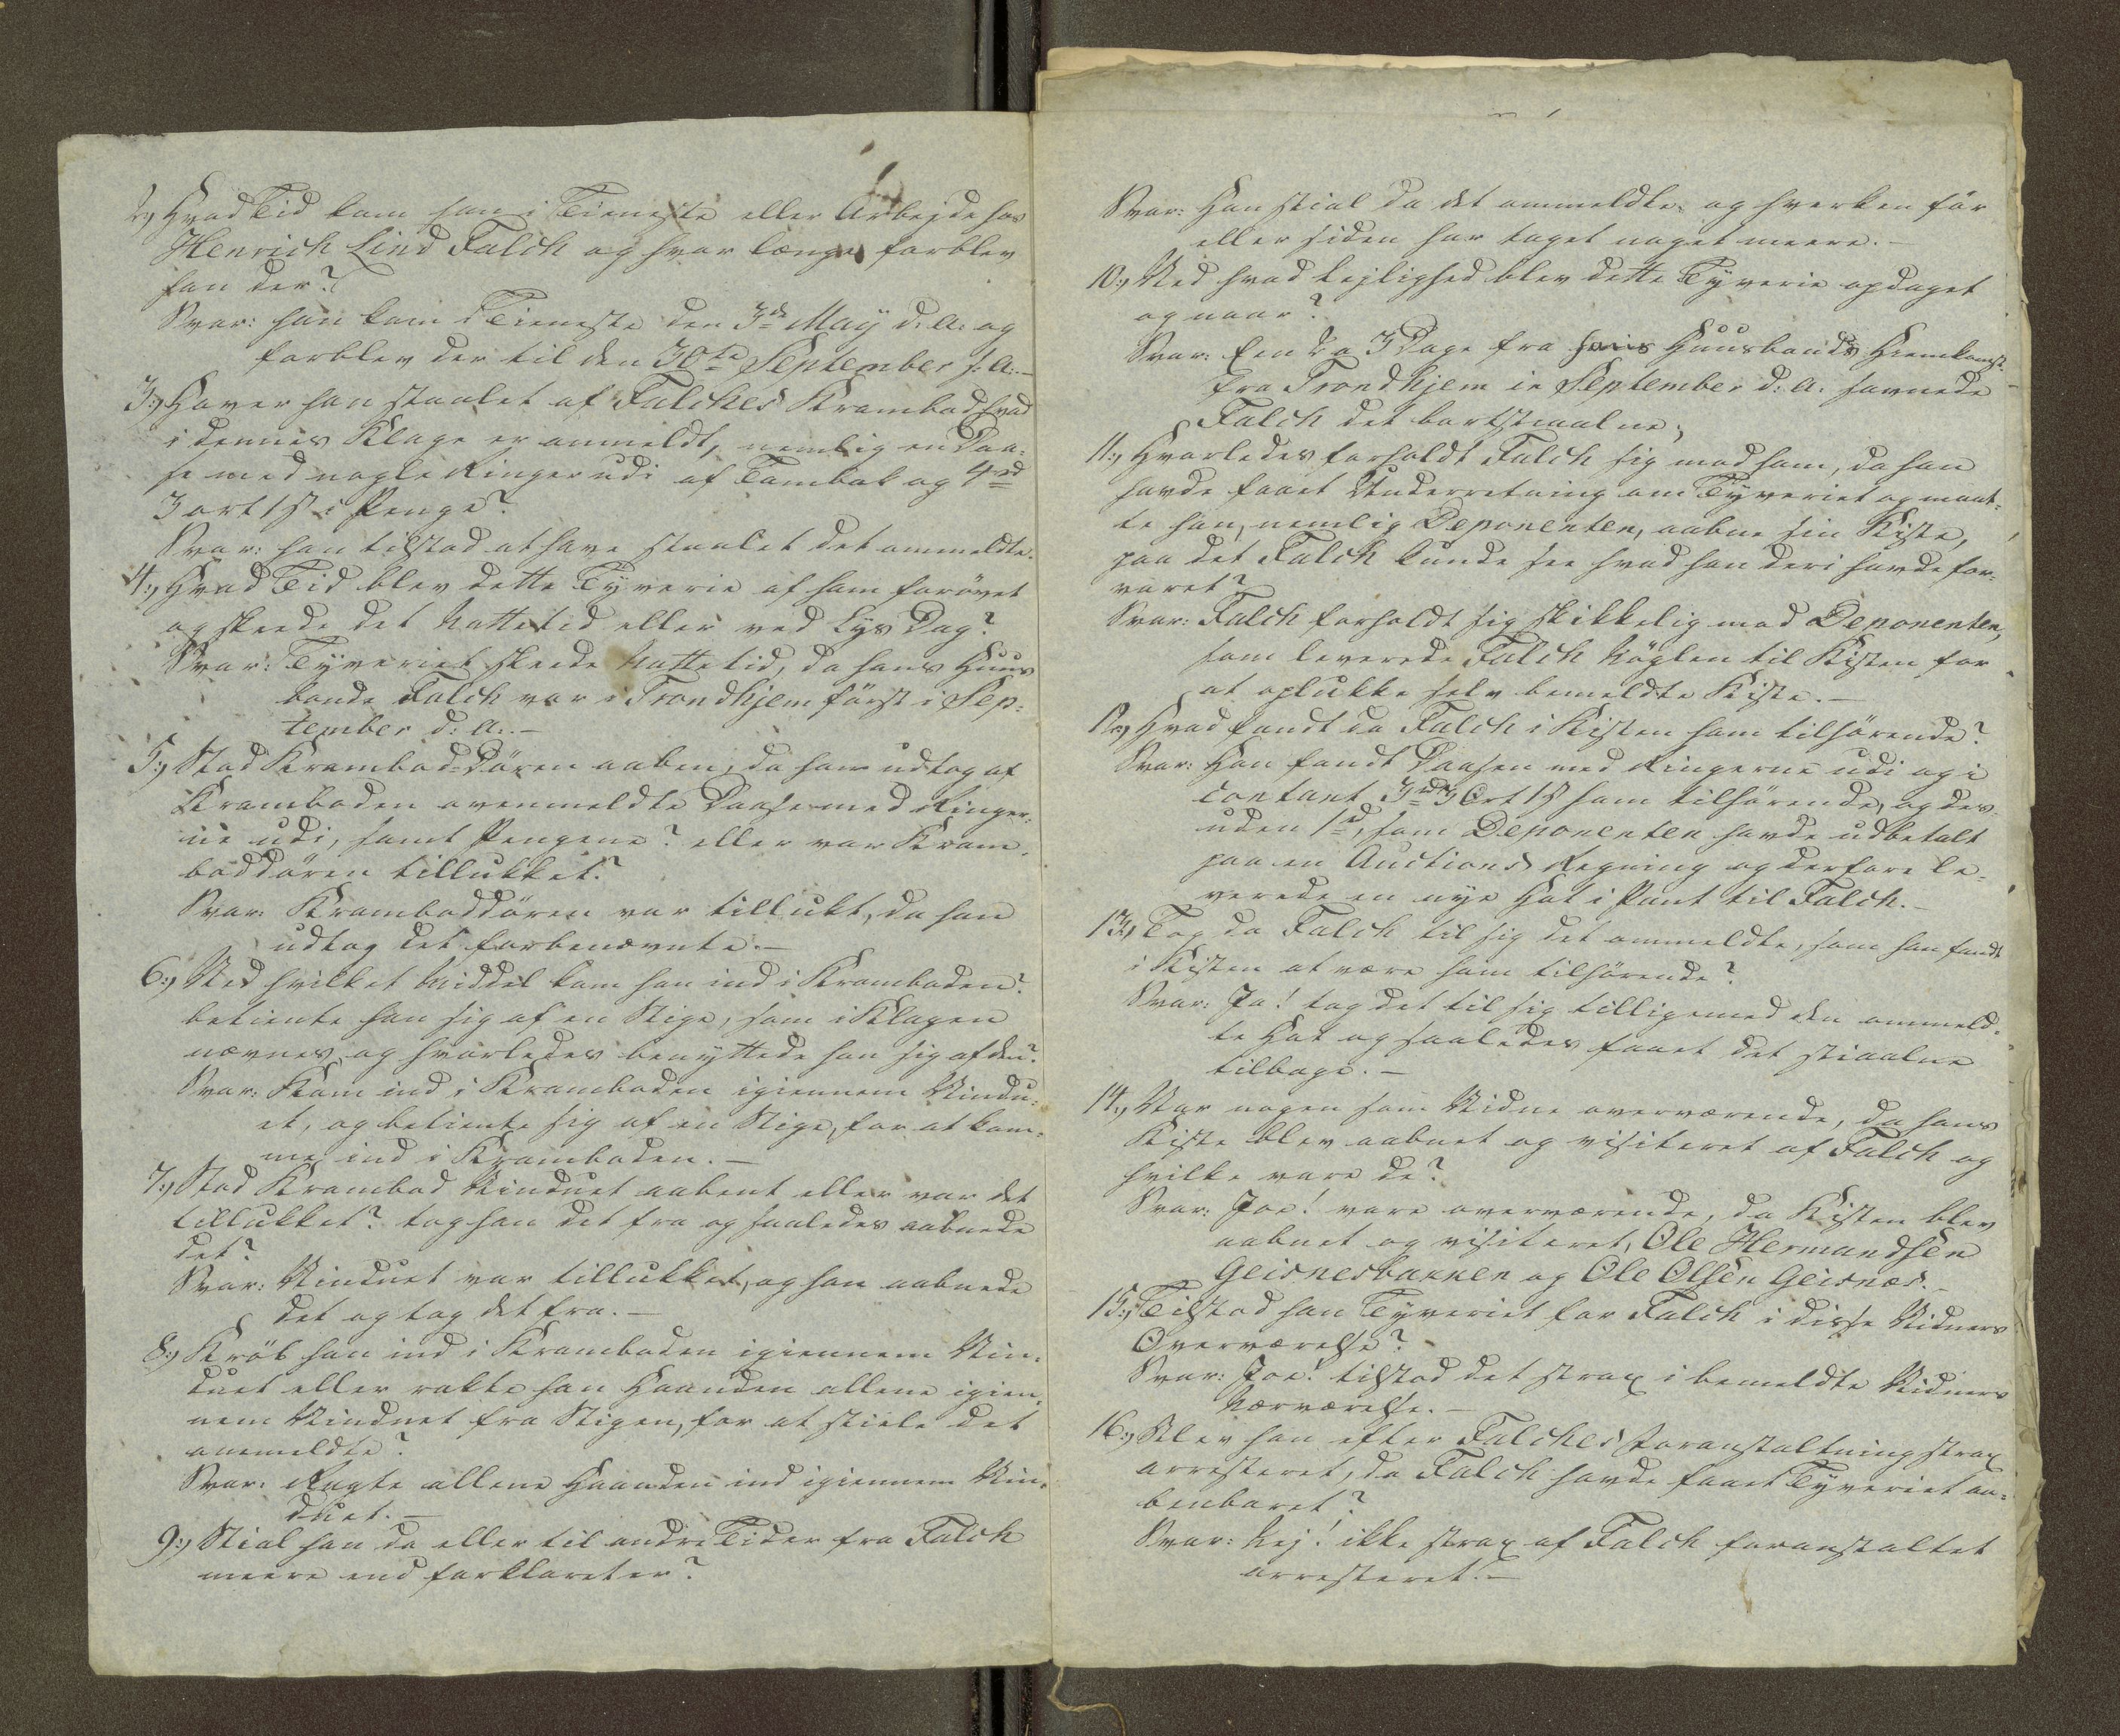 2, Hvad Tid kom han i Tieneste eller Arbejde hos
Henrich Lind Falch og hvor længe forblev
han der?
Svar: han kom i Tieneste den 3de May d: A: og
forblev der til den 30te September s: A:.-
3:, Haver han staalet af Falches Krambod hvad
i dennes Klage er anmeldt, nemlig en Daa-
se med nogle Ringer udi af Tombak og 4rd
3 ort 1 s i Penge?
Svar: han tilstod at have staalet det ommeldte.
4:, Hvad Tid blev dette Tyverie af ham forøvet
og skeede det Nattetid eller ved Lys Dag?
Svar: Tyveriet skeede Nattetid, da hans Huus
bonde Falch var i Trondhjem først i Sep-
tember d: A:.-
5:, Stod Krambod-Døren aaben, da han udtog af
Kramboden ovenmeldte Daase med Ringer-
ne udi, samt Pengene? eller var Kram-
boddøren tillukket?
Svar: Kramboddøren var tillukt, da han
udtog det forbenævnte.-
6:, Ved hvilket Middel kom han ind i Kramboden?
betiente han sig af en Stige, som i Klagen
nævnes, og hvorledes benyttede han sig af den?
Svar: Kom ind i Kramboden igiennem Vindu-
et, og betiente sig af en Stige, for at kom-
me ind i Kramboden.-
7:, Stod Krambod Vinduet aabent eller var det
tillukket? tog han det fra og saaledes aabnede
det?
Svar: Vinduet var tillukket, og han aabnede
det og tog det fra.-
8:, Krøb han ind i Kramboden igiennem Vin-
duet eller rakte han Haanden allene igien-
nem Vinduet fra Stigen, for at stiele det
anmeldte?
Svar: Ragte allene Haanden ind igiennem Vin-
duet.-
9:, Stial han da eller til andre Tider fra Falch
meere end forklaret er?
Svar: Han stial da det ommeldte og hverken før
eller siden har taget noget meere.-
10:, Ved hvad Lejlighed blev dette Tyverie opdaget
og naar?
Svar: En 2 a 3 Dage fra hans Huusbonds Hiemkomst
fra Trondhjem in September d: A: savnede
Falch det bortstaalne;
11:, Hvorledes forholdt Falch sig mod ham, da han
havde faaet Underretning om Tyveriet og maat-
te han, nemlig Deponenten, aabne sin Kiste,
paa det Falch kunde see hvad han deri havde for-
varet?
Svar: Falch forholdt sig skikkelig mod Deponenten,
som leverede Falch Nøglen til Kisten for
at oplukke selv bemeldte Kiste.-
12:, Hvad fandt da Falch i Kisten ham tilhørende?
Svar: Han fandt Daasen med Ringerne udi og i
Contant 3rd 3 Ort 1 s ham tilhørende, og des-
uden 1rd, som Deponenten havde udbetalt
paa en Auctions Regning og derfore le-
verede en nye Hat i Pant til Falch.-
13:, Tog da Falch til sig det ommeldte, som han fandt
i Kisten at være ham tilhørende?
Svar: Ja! tog det til sig tilligemed den ommeld-
te Hat og saaledes faaet det stiaalne
tilbage.-
14:, Var nogen som Vidne overværende, da hans
Kiste blev aabnet og visiteret af Falch og
hvilke vare de?
Svar: Joe! vare overværende, da Kisten blev
aabnet og visiteret, Ole Hermandsen
Geisnesbakken og Ole Olsen Geisnæs.-
15:, Tilstod han Tyveriet for Falch i disse Vidners
Overværelse?
Svar: Joe! tilstod det strax i bemeldte Vidners
Nærværelse.-
16:, Blev han efter Falches Foranstaltning strax
arresteret, da Falch havde faaet Tyveriet aa-
benbaret?
Svar: Nej! ikke strax af Falch foranstaltet
arresteret.-